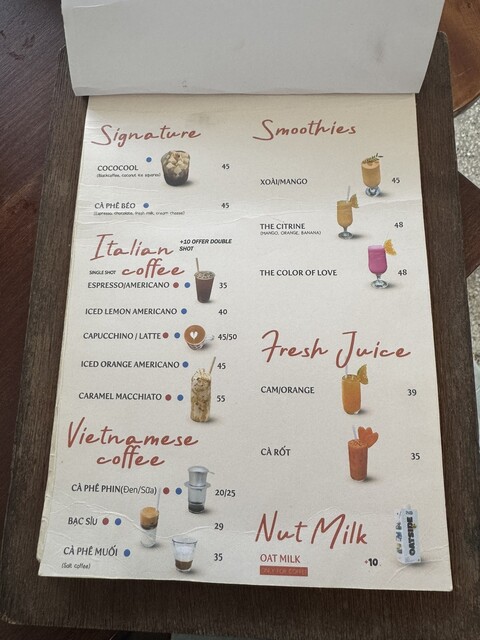 Signature
COCOCOOL 45
CÀ PHÊ BÉO 45
Italian coffee
+10 OFFER DOUBLE SHOT
SINGLE SHOT
ESPRESSO/AMERICANO 35
ICED LEMON AMERICANO 40
CAPUCCHINO / LATTE 45/50
ICED ORANGE AMERICANO 45
CARAMEL MACCHIATO 55
Vietnamese coffee
CÀ PHÊ PHIN(Đen/Sữa) 20/25
BẠC SỈU 29
CÀ PHÊ MUỐI 35
(Salt coffee)
Smoothies
XOÀI/MANGO 45
THE CITRINE 48
(MANGO, ORANGE, BANANA)
THE COLOR OF LOVE 48
Fresh Juice
CAM/ORANGE 39
CÀ RỐT 35
Nut Milk
OAT MILK +10
ONLY FOR COFFEE
OATSIDE